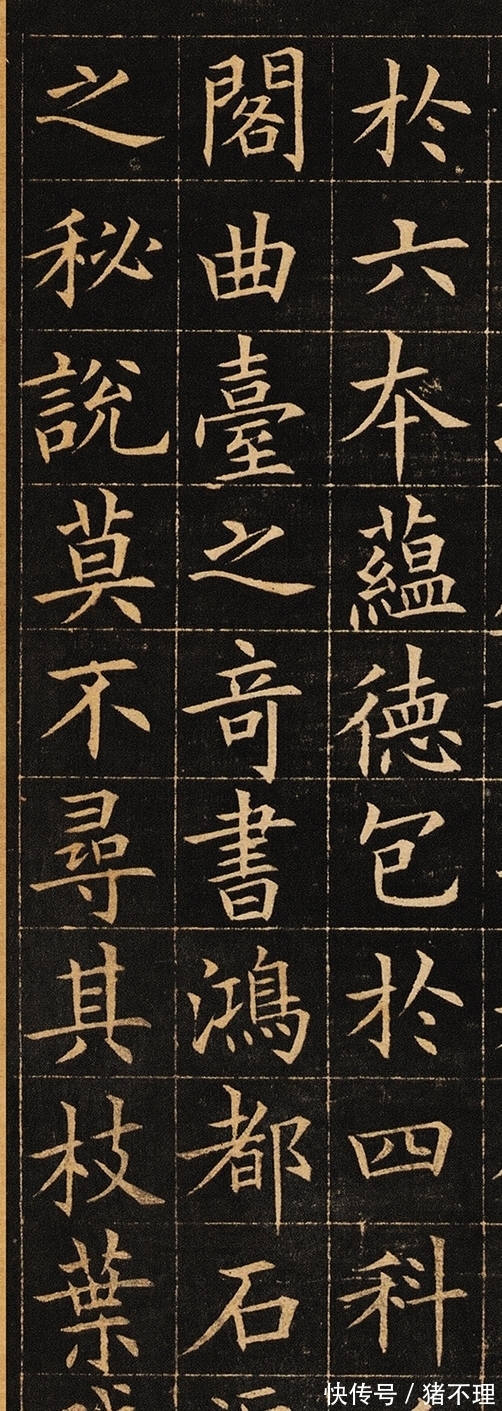 於六本蘊德包於四科
閣曲臺之奇書鴻都石
之秘說莫不尋其枝葉
快传号 / 猪不理